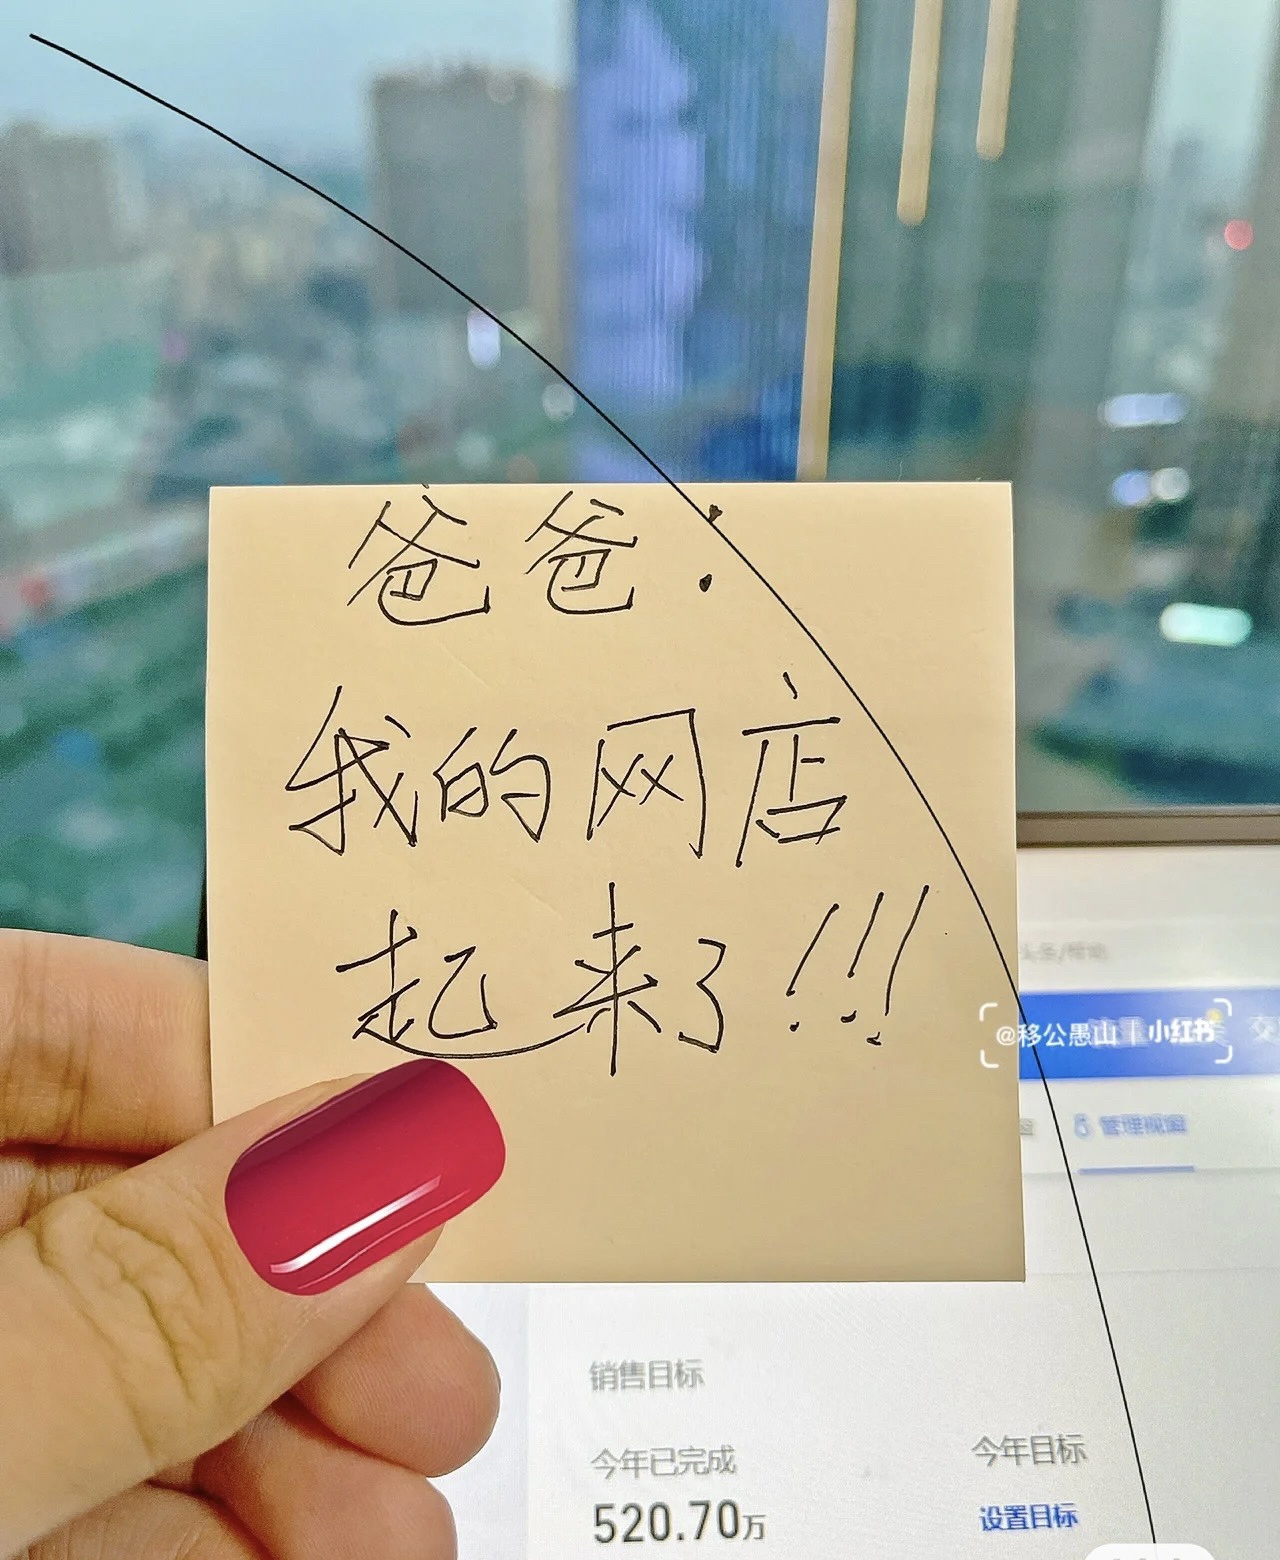 爸爸：
我的网店
起来了!!!
@移公愚山 | 小红书
管理视图
销售目标
今年已完成
今年目标
520.70万
设置目标